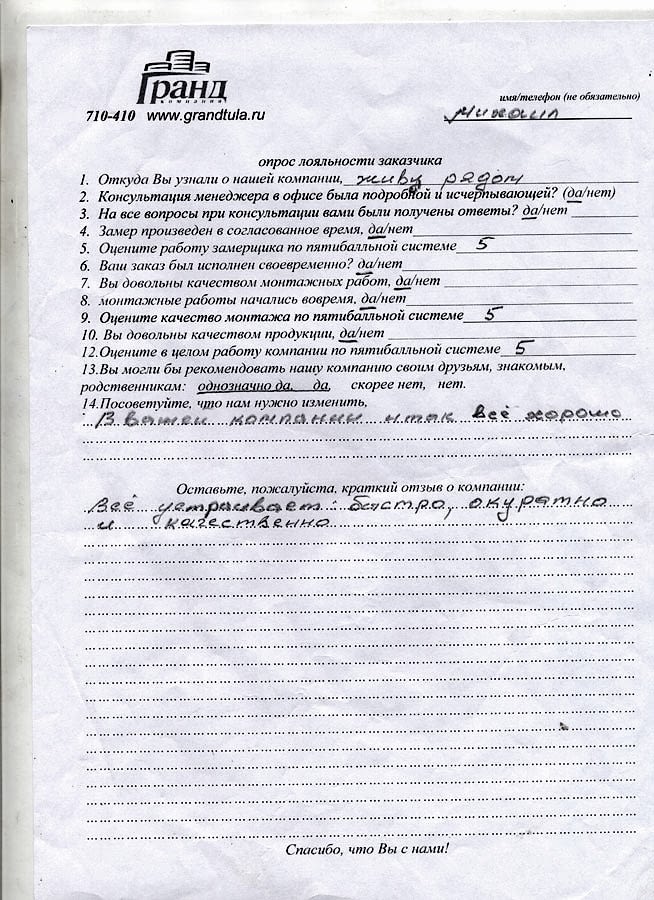 Гранд
компания
710-410 www.grandtula.ru
имя/телефон (не обязательно)
Михаил
опрос лояльности заказчика
1. Откуда Вы узнали о нашей компании, живу рядом
2. Консультация менеджера в офисе была подробной и исчерпывающей? (да/нет)
3. На все вопросы при консультации вами были получены ответы? да/нет
4. Замер произведен в согласованное время, да/нет
5. Оцените работу замерщика по пятибалльной системе 5
6. Ваш заказ был исполнен своевременно? да/нет
7. Вы довольны качеством монтажных работ, да/нет
8. монтажные работы начались вовремя, да/нет
9. Оцените качество монтажа по пятибалльной системе 5
10. Вы довольны качеством продукции, да/нет
12.Оцените в целом работу компании по пятибалльной системе 5
13.Вы могли бы рекомендовать нашу компанию своим друзьям, знакомым,
родственникам: однозначно да, да, скорее нет, нет.
14.Посоветуйте, что нам нужно изменить,
В вашей компании итак всё хорошо
Оставьте, пожалуйста, краткий отзыв о компании:
Всё устраивает: быстро, окуратно
и качественно
Спасибо, что Вы с нами!